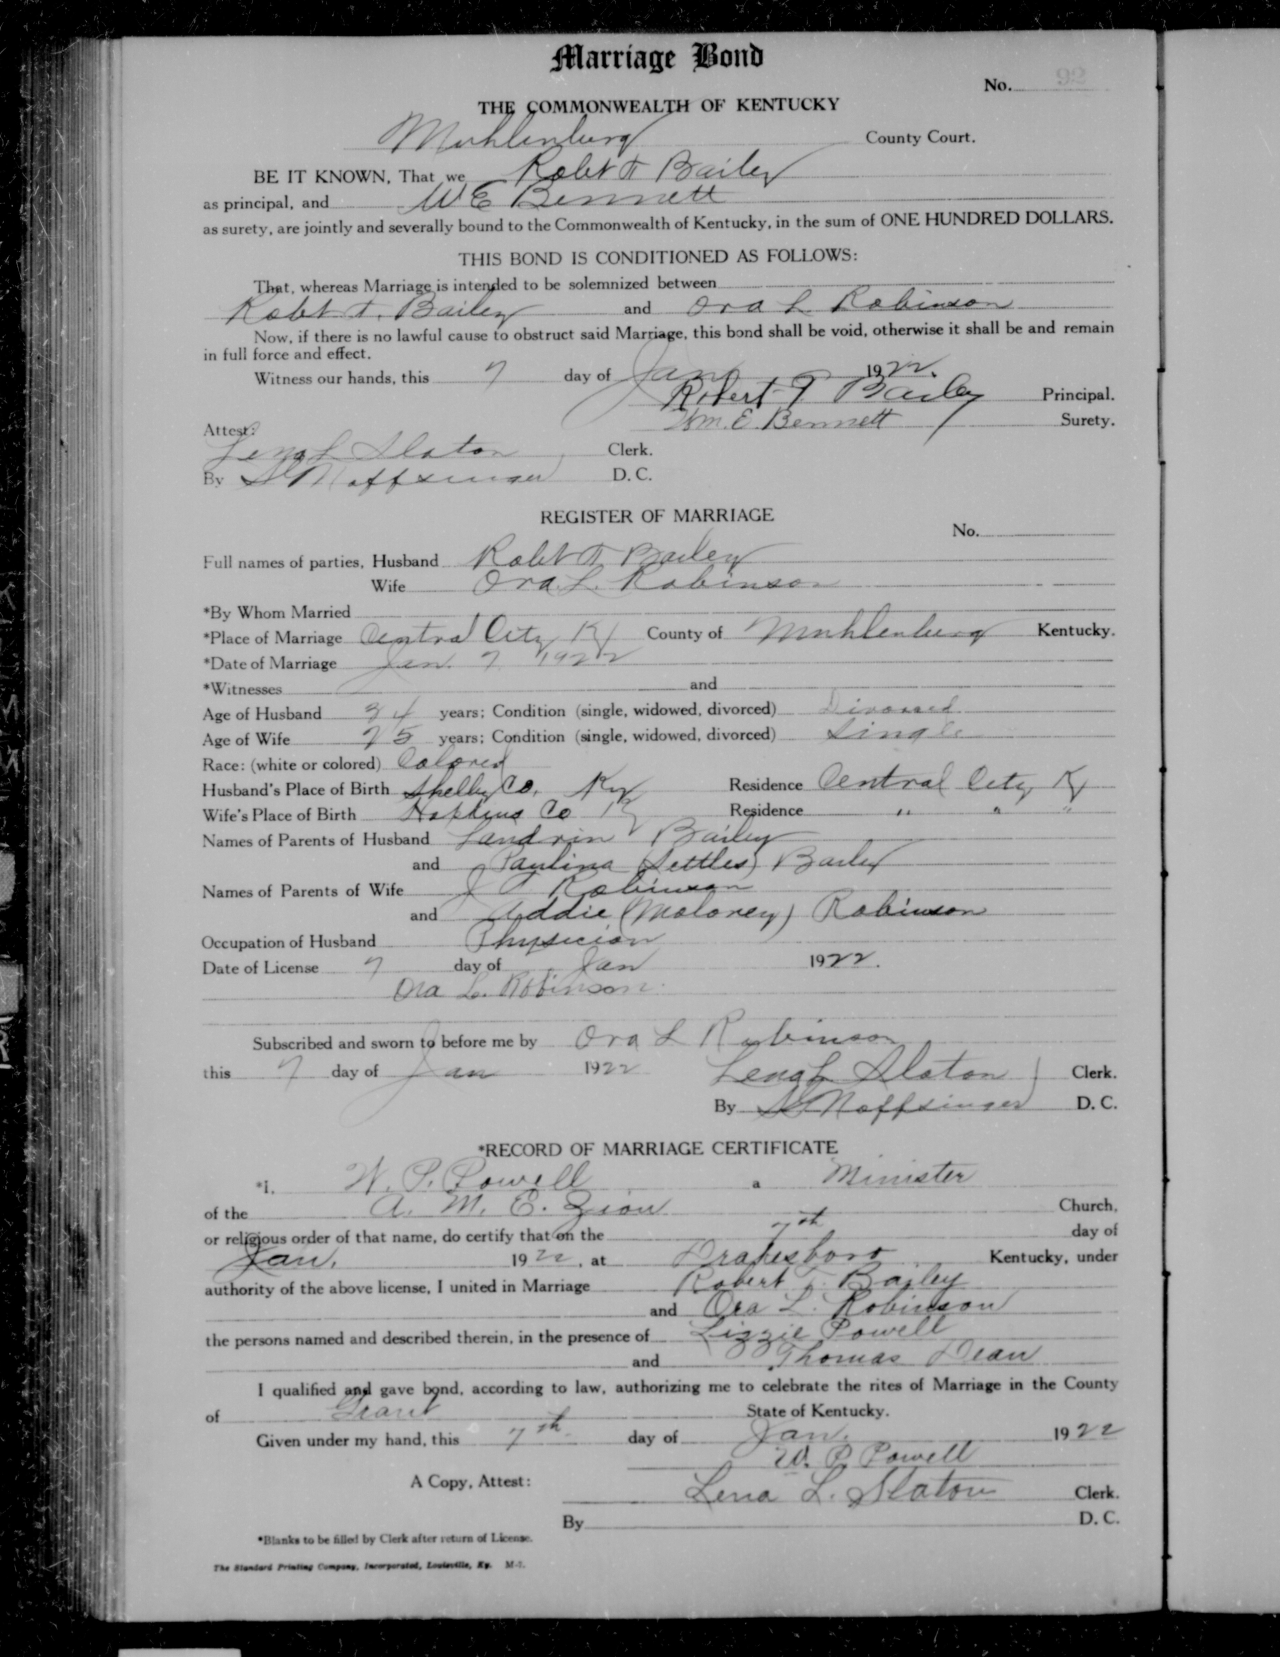 Marriage Bond
No. 92
THE COMMONWEALTH OF KENTUCKY
Muhlenburg County Court.
BE IT KNOWN, That we Robt T Bailey
as principal, and W E Bennett
as surety, are jointly and severally bound to the Commonwealth of Kentucky, in the sum of ONE HUNDRED DOLLARS.
THIS BOND IS CONDITIONED AS FOLLOWS:
That, whereas Marriage is intended to be solemnized between
Robt T. Bailey and Ora L Robinson
Now, if there is no lawful cause to obstruct said Marriage, this bond shall be void, otherwise it shall be and remain
in full force and effect.
Witness our hands, this 7 day of Jany 1922.
Robert T Bailey Principal.
Wm. E. Bennett Surety.
Attest:
Lena L Slaton Clerk.
By Noffsinger D. C.
REGISTER OF MARRIAGE
No.
Full names of parties, Husband Robt T Bailey
Wife Ora. L. Robinson
*By Whom Married
*Place of Marriage Central City Ky County of Muhlenburg Kentucky.
*Date of Marriage Jan. 7 1922
*Witnesses and
Age of Husband 34 years; Condition (single, widowed, divorced) Divorced
Age of Wife 25 years; Condition (single, widowed, divorced) Single
Race: (white or colored) Colored
Husband's Place of Birth Shelby Co. Ky Residence Central City Ky
Wife's Place of Birth Hopkins Co Ky Residence " " "
Names of Parents of Husband Landrin Bailey
and Paulina (Settles) Bailey
Names of Parents of Wife J Robinson
and Addie (Maloney) Robinson
Occupation of Husband Physician
Date of License 7 day of Jan 1922.
Ora L. Robinson.
Subscribed and sworn to before me by Ora L Robinson
this 7 day of Jan 1922 Lena L Slaton Clerk.
By Noffsinger D. C.
*RECORD OF MARRIAGE CERTIFICATE
*I, W. P. Powell a Minister
of the A. M. E. Zion Church,
or religious order of that name, do certify that on the 7th day of
Jan. 1922, at Drakesboro Kentucky, under
authority of the above license, I united in Marriage Robert T. Bailey
and Ora L. Robinson
the persons named and described therein, in the presence of Lizzie Powell
and Thomas Dean
I qualified and gave bond, according to law, authorizing me to celebrate the rites of Marriage in the County
of Grant State of Kentucky.
Given under my hand, this 7th day of Jan. 1922
W. P. Powell
A Copy, Attest: Lena L. Slaton Clerk.
By D. C.
*Blanks to be filled by Clerk after return of License.
The Standard Printing Company, Incorporated, Louisville, Ky. M-7.